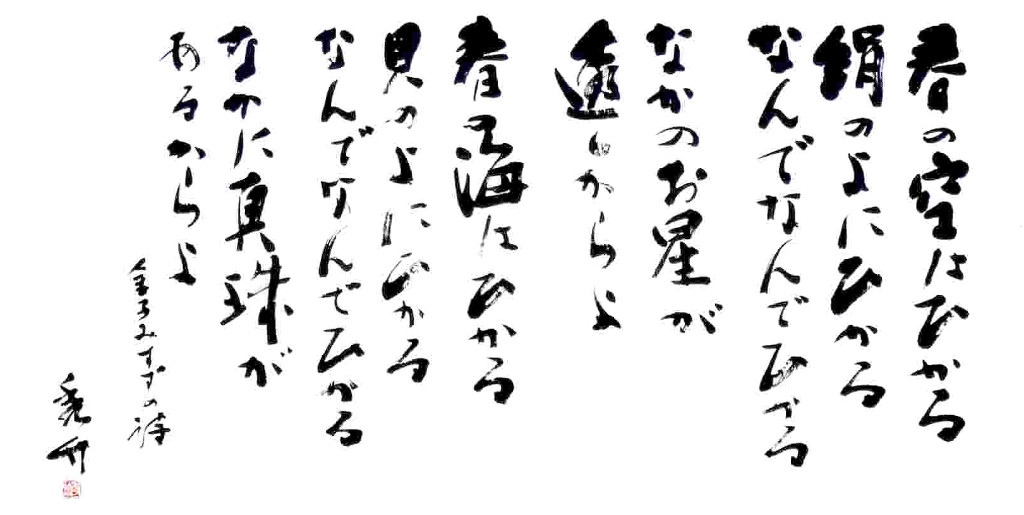 春の空はひかる
絹のよにひかる
なんでなんでひかる
なかのお星が
透くからよ
春の海はひかる
貝のよにひかる
なんでなんでひかる
なかに真珠が
あるからよ
金子みすずの詩